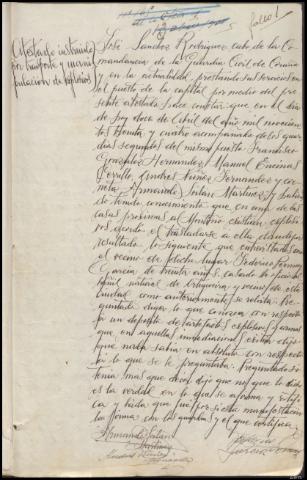 Folio 1
Atestado instruido
por transporte y mani-
pulación de explosivos
José Sánchez Rodríguez, cabo de la Co-
mandancia de la Guardia Civil de Coruña
y en la actualidad, prestando sus servicios en
el puesto de la capital por medio del pre-
sente atestado hace constar: que en el dia
de hoy doce de Abril de año mil novecien-
tos treinta y cuatro acompañado de los guar-
dias segundos del mismo puesto Francisco
González Hernández, Manuel Encinas
Andrés Núñez Fernández y cor-
neta Armando Martínez, y habien-
do tenido conocimiento que en una de las
casas proximas al existian explosi-
vos, siendo el trasladarse a ella dando por
resultado lo siguiente que entrevistandose con
el vecino de dicho lugar Federico
García de treinta años, casado, de oficio
natural de y vecino de esta
localidad como anteriormente se relata. Pre-
guntado diga lo que conozca con respecto
a un deposito de artefactos explosivos y armas
que en aquellas inmediaciones existen dijo:
que nada sabia en absoluto con respecto
a lo que se le preguntaba. Preguntado si
tenia mas que decir dijo que no, que lo dicho
es la verdad en lo que se afirma y ratifi-
ca y leida que fué por si esta manifestación
la firma con los guardias y el que certifica.